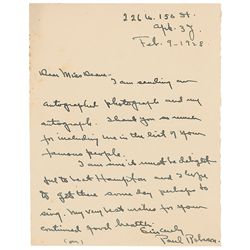 226 W. 150 St.
Apt. 3J
Feb. 9-1928
Dear Miss Dean-
I am sending an
autographed photograph and my
autograph. Thank you so much
for including me in the list of your
famous people.
I am sure it must be delight-
ful to be at Hampton and I hope
to get there some day perhaps to
sing. My very best wishes for your
continued good health.
Sincerely
Paul Robeson
(over)